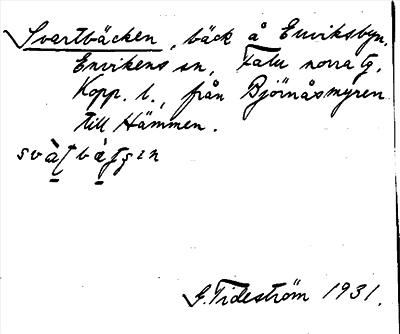 Svartbäcken, bäck å Enviksbyn,
Envikens sn, Falu norra tg,
Kopp. l., från Björnåsmyren
till Hämmen.
G. Tideström 1931.